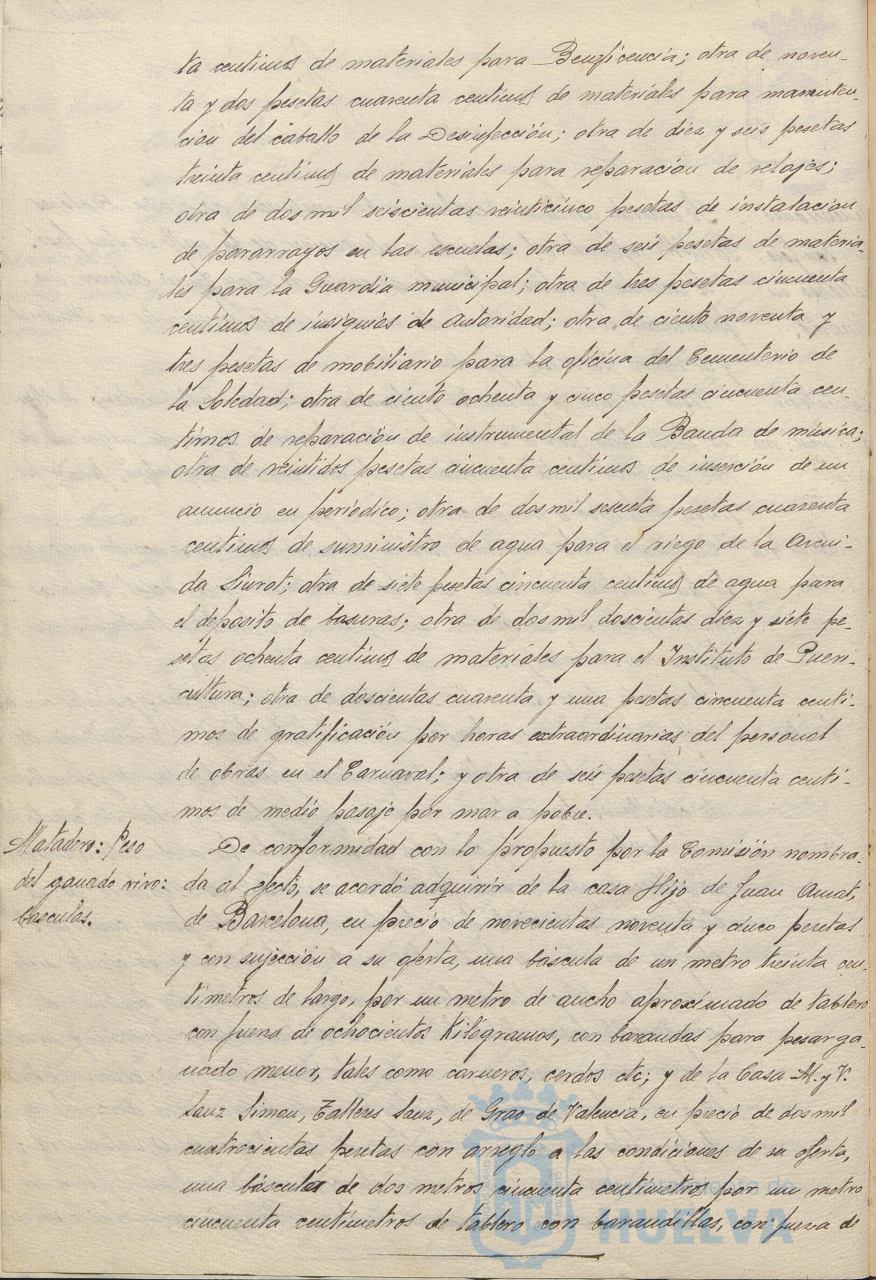 ta centimos de materiales para Beneficencia; otra de noven-
ta y dos pesetas cuarenta centimos de materiales para manuten-
cion del caballo de la Desinfección; otra de diez y seis pesetas
treinta centimos de materiales para reparacion de relojes;
otra de dos mil seiscientas veinticinco pesetas de instalacion
de pararrayos en las escuelas; otra de seis pesetas de materia-
les para la Guardia municipal; otra de tres pesetas cincuenta
centimos de insignias de Autoridad; otra de ciento noventa y
tres pesetas de mobiliario para la oficina del Cementerio de
la Soledad; otra de ciento ochenta y cinco pesetas cincuenta cen-
timos de reparación de instrumental de la Banda de música;
otra de veintidos pesetas cincuenta centimos de inserción de un
anuncio en periodico; otra de dos mil sesenta pesetas cuarenta
centimos de suministro de agua para el riego de la Aveni-
da Siurot; otra de siete pesetas cincuenta centimos de agua para
el deposito de basuras; otra de dos mil doscientas diez y siete pe-
setas ochenta centimos de materiales para el Instituto de Pueri-
cultura; otra de doscientas cuarenta y una pesetas cincuenta centi-
mos de gratificación por horas extraordinarias del personal
de obras en el Carnaval; y otra de seis pesetas cincuenta centi-
mos de medio pasaje por mar a pobre.
Matadero: Peso
del ganado vivo:
basculas.
De conformidad con lo propuesto por la Comisión nombra-
da al efecto, se acordó adquirir de la casa Hijo de Juan Amat,
de Barcelona, en precio de novecientas noventa y cinco pesetas
y con sujección a su oferta, una báscula de un metro treinta cen-
tímetros de largo, por un metro de ancho aproximado de tablero
con fuerza de ochocientos Kilógramos, con barandas para pesar ga-
nado menor, tales como carneros, cerdos etc; y de la Casa M. y V.
Sanz Simon, Talleres Sanz, de Grao de Valencia, en precio de dos mil
cuatrocientas pesetas con arreglo a las condiciones de su oferta,
una báscula de dos metros cincuenta centímetros por un metro
cincuenta centímetros de tablero con barandillas, con fuerza de
HUELVA